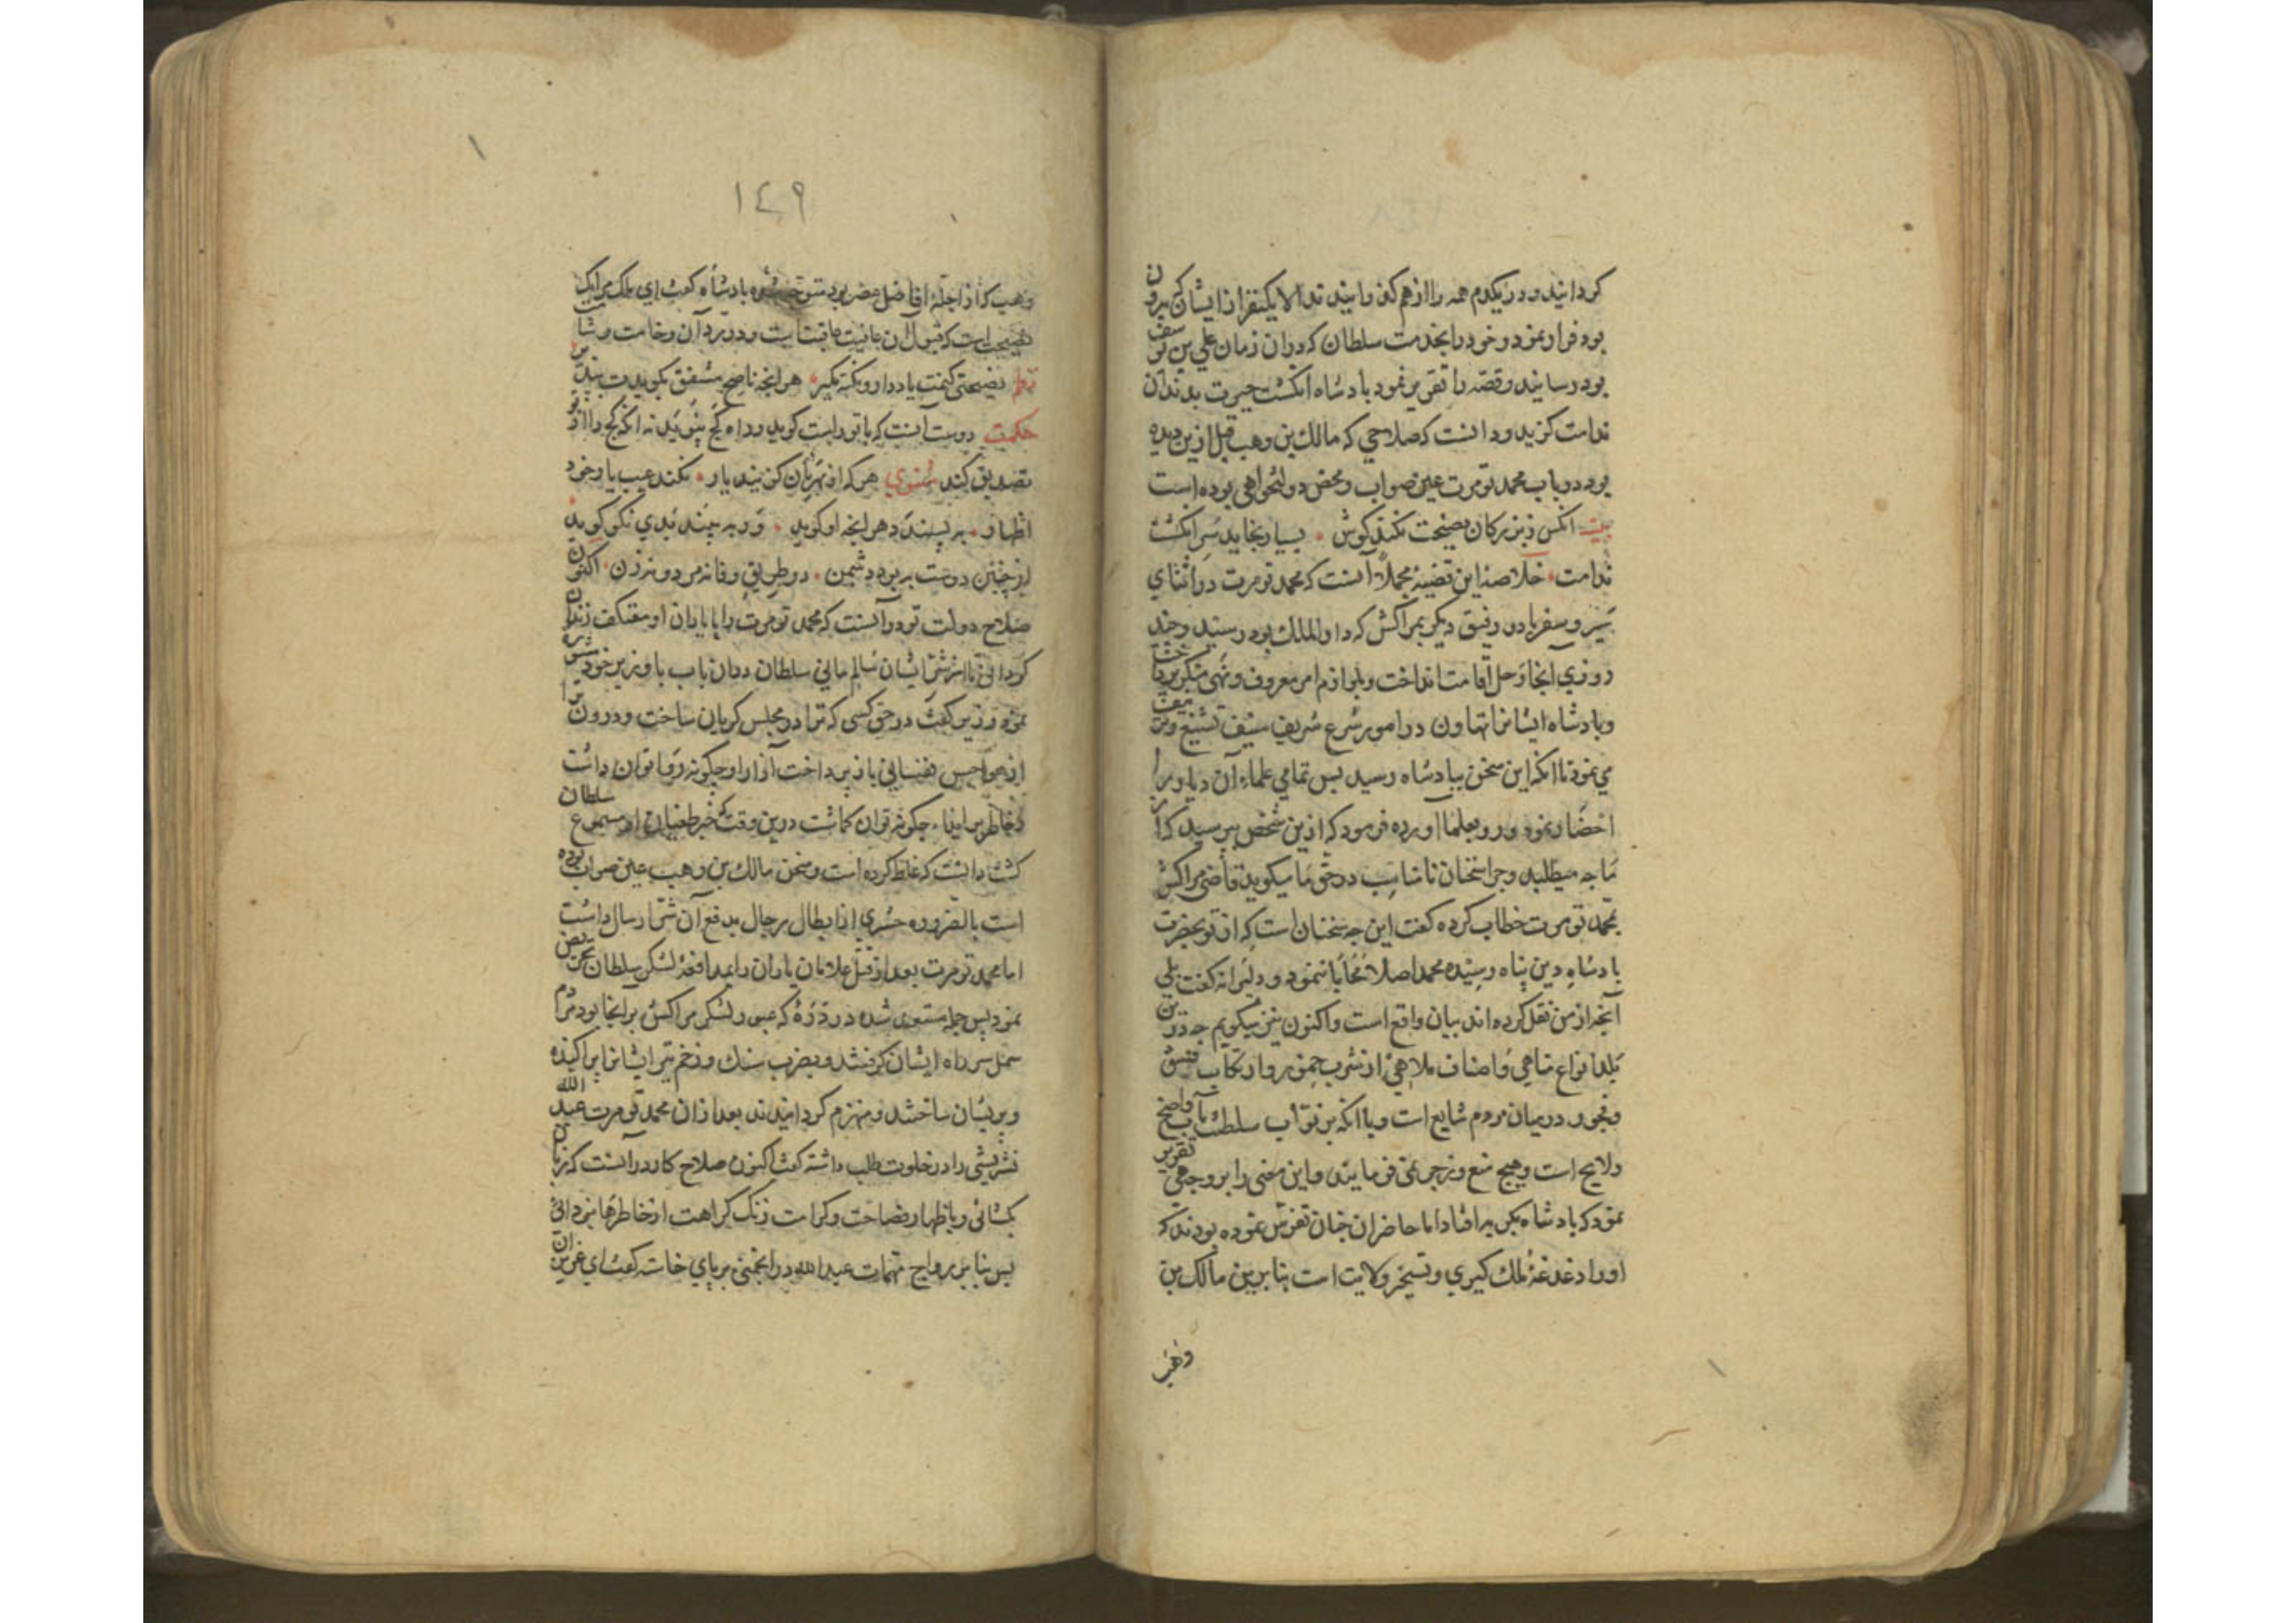 کردانیدند و در یکدم همه را از هم کذرانیدند الا یکنفر از ایشان که بیرون
بود فرار نمود و خود را بخدمت سلطان که دران زمان علی بن یوسف
بود رسانید و قصه را تقریر نمود بادشاه انکشت حیرت بدندان
ندامت کزید و دانست که صلاحی که مالک بن وهب قبل ازین دیده
بود در باب محمد تومرت عین صواب و محض دولتخواهی بوده است
بیت انکس ز بزرکان نصیحت نکند کوش بسیار بخاید سر انکشت
ندامت خلاصه این قضیه مجملا آنست که محمد تومرت در اثنای
سیر و سفر با دو رفیق دیکر بمراکش که دار الملک بود رسید و چند
روزی آنجا رحل اقامت انداخت و بلوازم امر معروف و نهی منکر پرداخت
و بادشاه ایشانرا تهاون در امور شرع شریف
می نمود تا آنکه این سخن ببادشاه رسید بس تمامی علماء آن دیار را
احضار نمود و رو بعلما آورده فرمود که ازین شخص ببرسید که از
ما جه میطلبد و جرا سخنان نامناسب در حق ما میکوید قاضی مراکش
بمحمد تومرت خطاب کرده کفت این جه سخنان است که از تو بحضرت
بادشاه دین بناه رسیده محمد اصلا محابا ننمود و دلیرانه کفت بلی
آنجه از من نقل کرده اند بیان واقع است و اکنون نیز میکویم جه درین
بلد انواع مناهی و اصناف ملاهی از شرب خمور و ارتکاب فسق
و فجور در میان مردم شایع است و با آنکه بر نواب سلطنت مآب واضح
و لایح است و هیج منع و زجر نمی فرمایند و این معنی را بر وجهی تقریر
نمود که بادشاه بکریه افتاد اما حاضران جنان تفرس نموده بودند که
او را دغدغه ملک کیری و تسخیر ولایت است بنا برین مالک بن
وهب
١٤٩
وهیب که از اجله افاضل عصر بود متوجه شده بادشاه کفت ای ملک مرا یک
نصیحت است که قبول آن عافیت عاقبت است و در رد آن وخامت
نصیحتی کنمت یاد دار و نکته بکیر هر آنجه ناصح مشفق بکویدت ببذیر
حکمت دوست آنست که با تو راست کوید و راه کج ننوید نه آنکه کج را از تو
تصدیق کند مثنوی هر که از نهر یان کزیند یار نکند عیب یار خود
اظهار به بسندد هر آنجه او کوید ور به بیند بدی نکو کوید
از جنین دوست به بود دشمن در طریق وفا نه مرد و نه زن اکنون
صلاح دولت تو در آنست که محمد تومرت را با یاران او معتکف زندان
کردانی تا از شر ایشان سالم مانی سلطان دران باب با وزیر خود مشورت
نمود وزیر کفت در حق کسی که ترا در مجلس کریان ساخت و درون ترا
از هواجس نفسانی باز برداخت آزار او جکونه روا توان داشت
جکونه توان کماشت درین وقت که خبر طغیان او مسموع سلطان
کشت دانست که غلط کرده است و سخن مالک بن وهب عین صواب بوده
است بالضروره حشری از ابطال رجال بدفع آن شر ارسال داشت
اما محمد تومرت بعد از قتل غلامان یاران را بمدافعه لشکر سلطان تحریض
نمود بس جمله مستوی شده در دره که عبور لشکر مراکش بر آنجا بود مردم
سر راه ایشان کرفتند و بضرب سنک و زخم تیر ایشانرا براکنده
و بریشان ساختند و منهزم کردانیدند بعد ازان محمد تومرت عبد الله
نشریشی را در خلوت طلب داشته کفت اکنون صلاح کار در آنست که زبان
بکشائی و باظهار فصاحت و کرامت زنک کراهت از خاطرها بزدائی
بس بنا بر رواج مهمات عبد الله در انجمنی بر بای خاسته کفت ای عزیزان